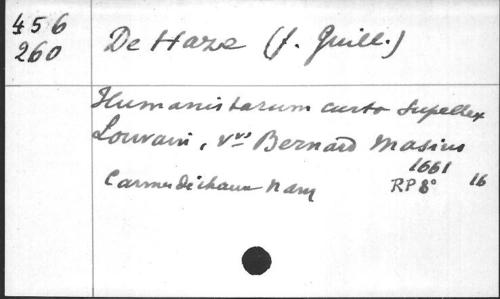 456
260
De Haze (f. Guill.)
Humanistarum curta supellex
Louvain, Vve Bernard Masius
1661
Carmes déchaux Nam RP 8° 16